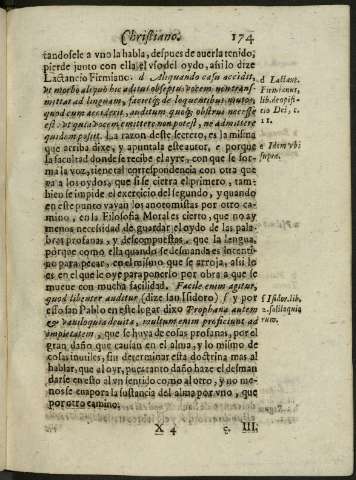 Christiano. 174
tandosele a vno la habla, despues de auerla tenido,
pierde junto con ella el vso del oydo, assi lo dize
Lactancio Firmiano. d Aliquando casu accidit,
vt morbo aliquo hic aditus obseptus vocem non trans-
mittat ad linguam, faciatq; de loquentibus mutos,
quod cum acciderit, auditum quoq; obstrui necesse
est: vt qui vocem emittere non potest, ne admittere
quidem possit. La razon deste secreto, es la misma
que arriba dixe, y apuntala este autor, e porque
la facultad donde se recibe el ayre, con que se for-
ma la voz, tiene tal correspondencia con otra que
va a los oydos, que si se cierra el primero, tam-
bien se impide el exercicio del segundo, y quando
en este punto vayan los anotomistas por otro ca-
mino, en la Filosofia Moral es cierto, que no ay
menos necessidad de guardar el oydo de las pala-
bras profanas, y descompuestas, que la lengua,
porque como ella quando se desmanda es incenti-
uo para pecar, en el mismo que se arroja, assi lo
es en el que le oye para ponerlo por obra a que se
mueue con mucha facilidad. Facile enim agitur,
quod libenter auditur (dize san Isidoro) f y por
esso san Pablo en este lugar dixo Prophana autem
& vaniloquia deuita, multum enim proficiunt ad
impietatem, que se huya de cosas profanas, por el
gran daño que causan en el alma, y lo mismo de
cosas inutiles, sin determinar esta doctrina mas al
hablar, que al oyr, pues tanto daño haze el desman
darse en esto al vn sentido como al otro, y no me-
nos se euapora la sustancia del alma por vno, que
por otro camino.
X 4 §. III.
d Lactant.
Firmianus,
lib. de opifi-
cio Dei, c.
11.
e Idem vbi
supra.
f Isidor. lib.
2. soliloquio
rum.